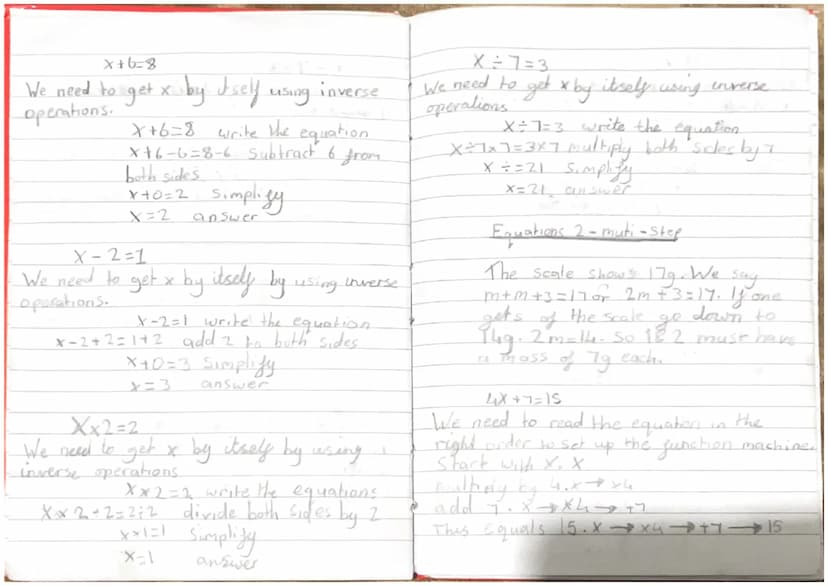 x+6=8
We need to get x by itself using inverse
operations.
x+6=8 write the equation
x+6-6=8-6 subtract 6 from
both sides
x+0=2 simplify
x=2 answer
x-2=1
We need to get x by itself by using inverse
operations.
x-2=1 write the equation
x-2+2=1+2 add 2 to both sides
x+0=3 simplify
x=3 answer
X×2=2
We need to get x by itself by using
inverse operations
x×2=2 write the equations
x×2÷2=2÷2 divide both sides by 2
x×1=1 simplify
x=1 answer
x÷7=3
We need to get x by itself using inverse
operations
x÷7=3 write the equation
x÷7×7=3×7 multiply both sides by 7
x÷=21 simplify
x=21, answer
Equations 2-muti-step
The scale shows 17g. We say
m+m+3=17 or 2m+3=17. If one
gets of the scale go down to
14g. 2m=14. So 2 must have
a mass of 7g each.
4x+7=15
We need to read the equation in the
right order to set up the function machine.
Start with x. x
multiply by 4. x→×4
add 7. x→×4→+7
This equals 15. x→×4→+7→15